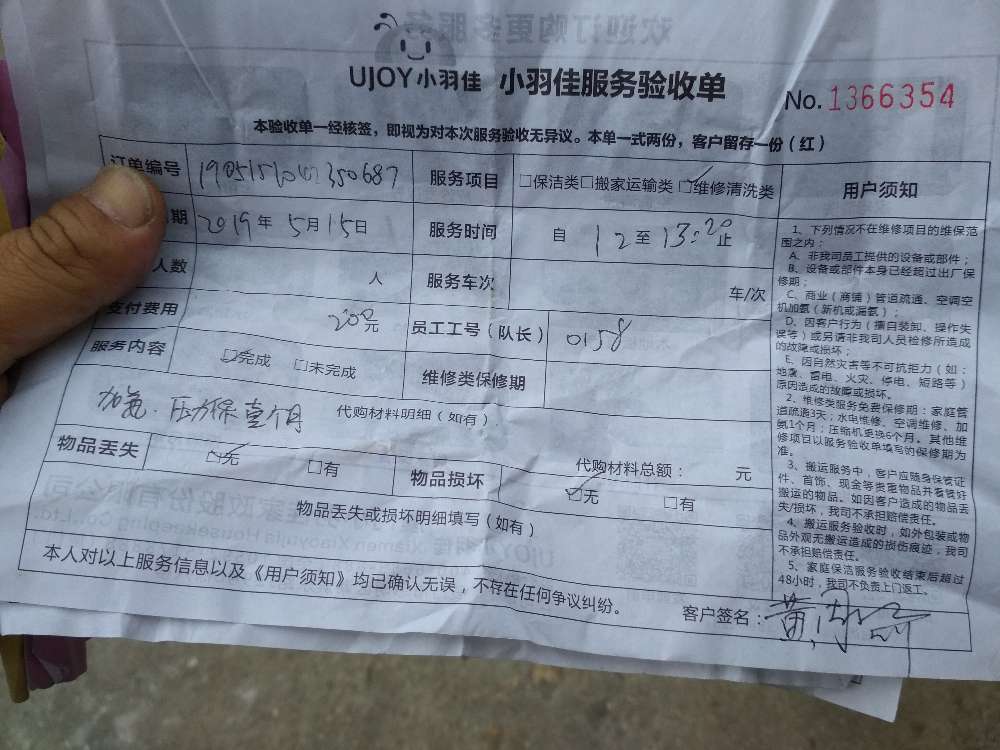 UJOY小羽佳 小羽佳服务验收单
No. 1366354
本验收单一经核签，即视为对本次服务验收无异议。本单一式两份，客户留存一份（红）
订单编号 服务项目 □保洁类□搬家运输类☑维修清洗类
期 2019年 5月15日 服务时间 自 12 至 13:20 止
人数 人 服务车次 车/次
支付费用 200元 员工工号（队长） 0158
服务内容 ☑完成 □未完成 维修类保修期
加氨. 压力保壹个月 代购材料明细（如有）
代购材料总额： 元
物品丢失 ☑无 □有 物品损坏 ☑无 □有
物品丢失或损坏明细填写（如有）
本人对以上服务信息以及《用户须知》均已确认无误，不存在任何争议纠纷。
客户签名：黄
用户须知
1、下列情况不在维修项目的维保范
围之内：
A、非我司员工提供的设备或部件；
B、设备或部件本身已经超过出厂保
修期；
C、商业（商铺）管道疏通、空调空
机加氨（新机或漏氨）；
D、因客户行为（擅自装卸、操作失
误等）或另请非我司人员检修所造成
的故障或损坏；
E、因自然灾害等不可抗拒力（如：
地震、雷电、火灾、停电、短路等）
原因造成的故障或损坏。
2、维修类服务免费保修期：家庭管
道疏通3天；水电维修、空调维修、加
氨1个月；压缩机更换6个月。其他维
修项目以服务验收单填写的保修期为
准。
3、搬运服务中，客户应随身保管证
件、首饰、现金等贵重物品并看管好
搬运的物品。如因客户造成的物品丢
失/损坏，我司不承担赔偿责任。
4、搬运服务验收时，如外包装或物
品外观无搬运造成的损伤痕迹，我司
不承担赔偿责任。
5、家庭保洁服务验收结束后超过
48小时，我司不负责上门返工。